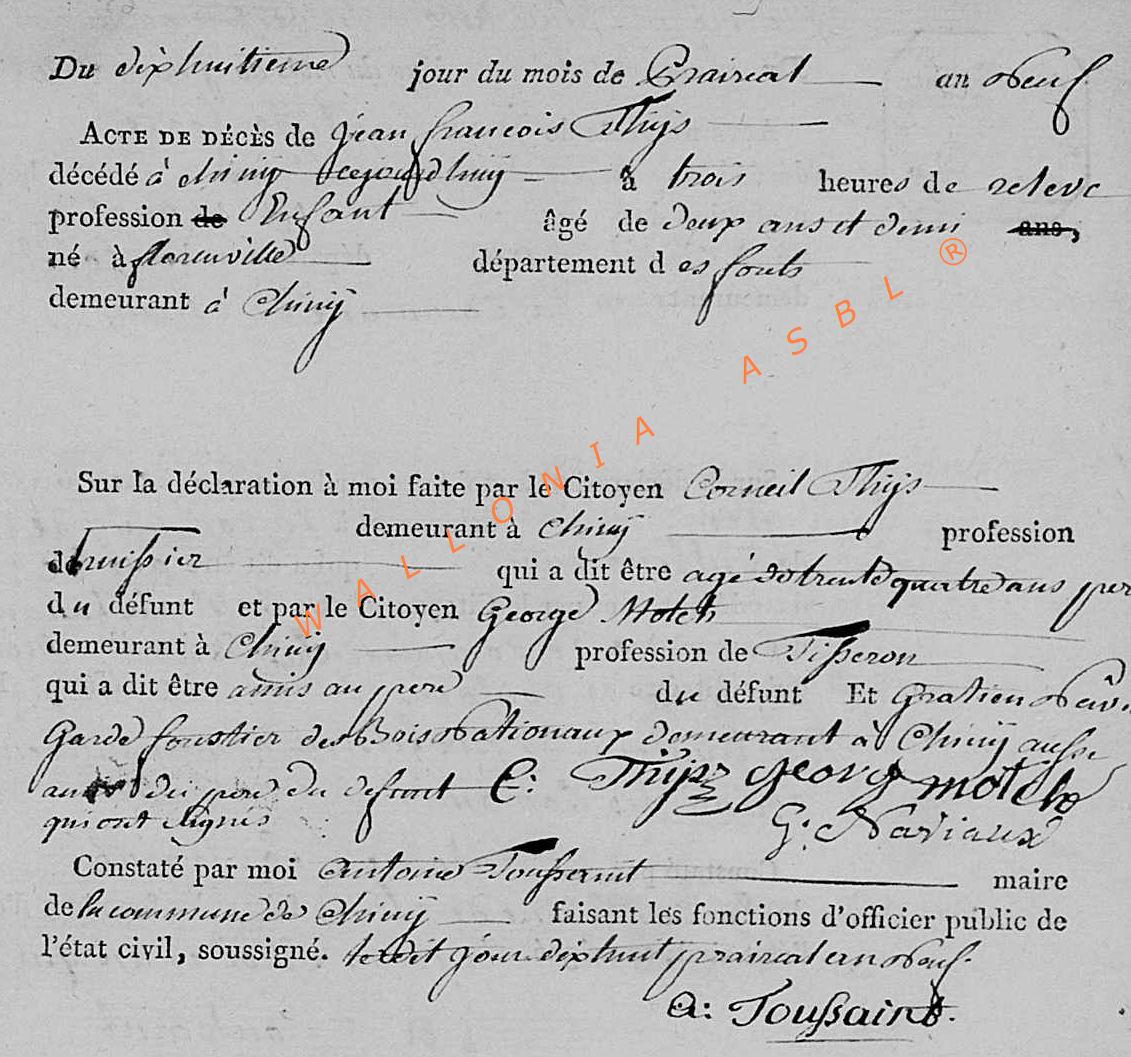 Du dixhuitieme jour du mois de Prairial an Neuf
ACTE DE DÉCÈS de Jean francois Thijs
décédé à chinij cejourdhuij à trois heures de releve
profession de Enfant âgé de deux ans et demi ans,
né à florenville département d es forets
demeurant à Chinij
Sur la déclaration à moi faite par le Citoyen Corneil Thijs
demeurant à chinij profession
de qui a dit être agé de trente quatre ans per
du défunt et par le Citoyen George Motch
demeurant à Chinij profession de Tisseron
qui a dit être amis au pere du défunt Et Gratien
Garde forestier des Bois Nationaux demeurant à Chinij aussi
amis du pere du defunt C: Thijs georg motch
qui ont signés G: Naviaux
Constaté par moi antoine Toussaint maire
de la commune de Chinij faisant les fonctions d'officier public de
l'état civil, soussigné. ledit jour dixhuit prairial an Neuf.
a: Toussaint.
WALLONIA ASBL ®